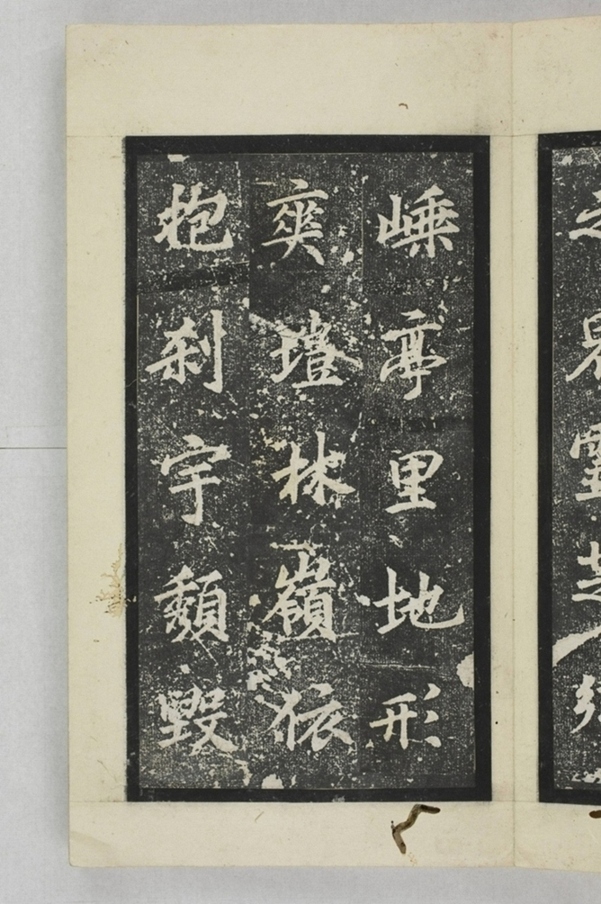 嵊亭里地形
爽塏林嶺依
抱刹宇頹毀